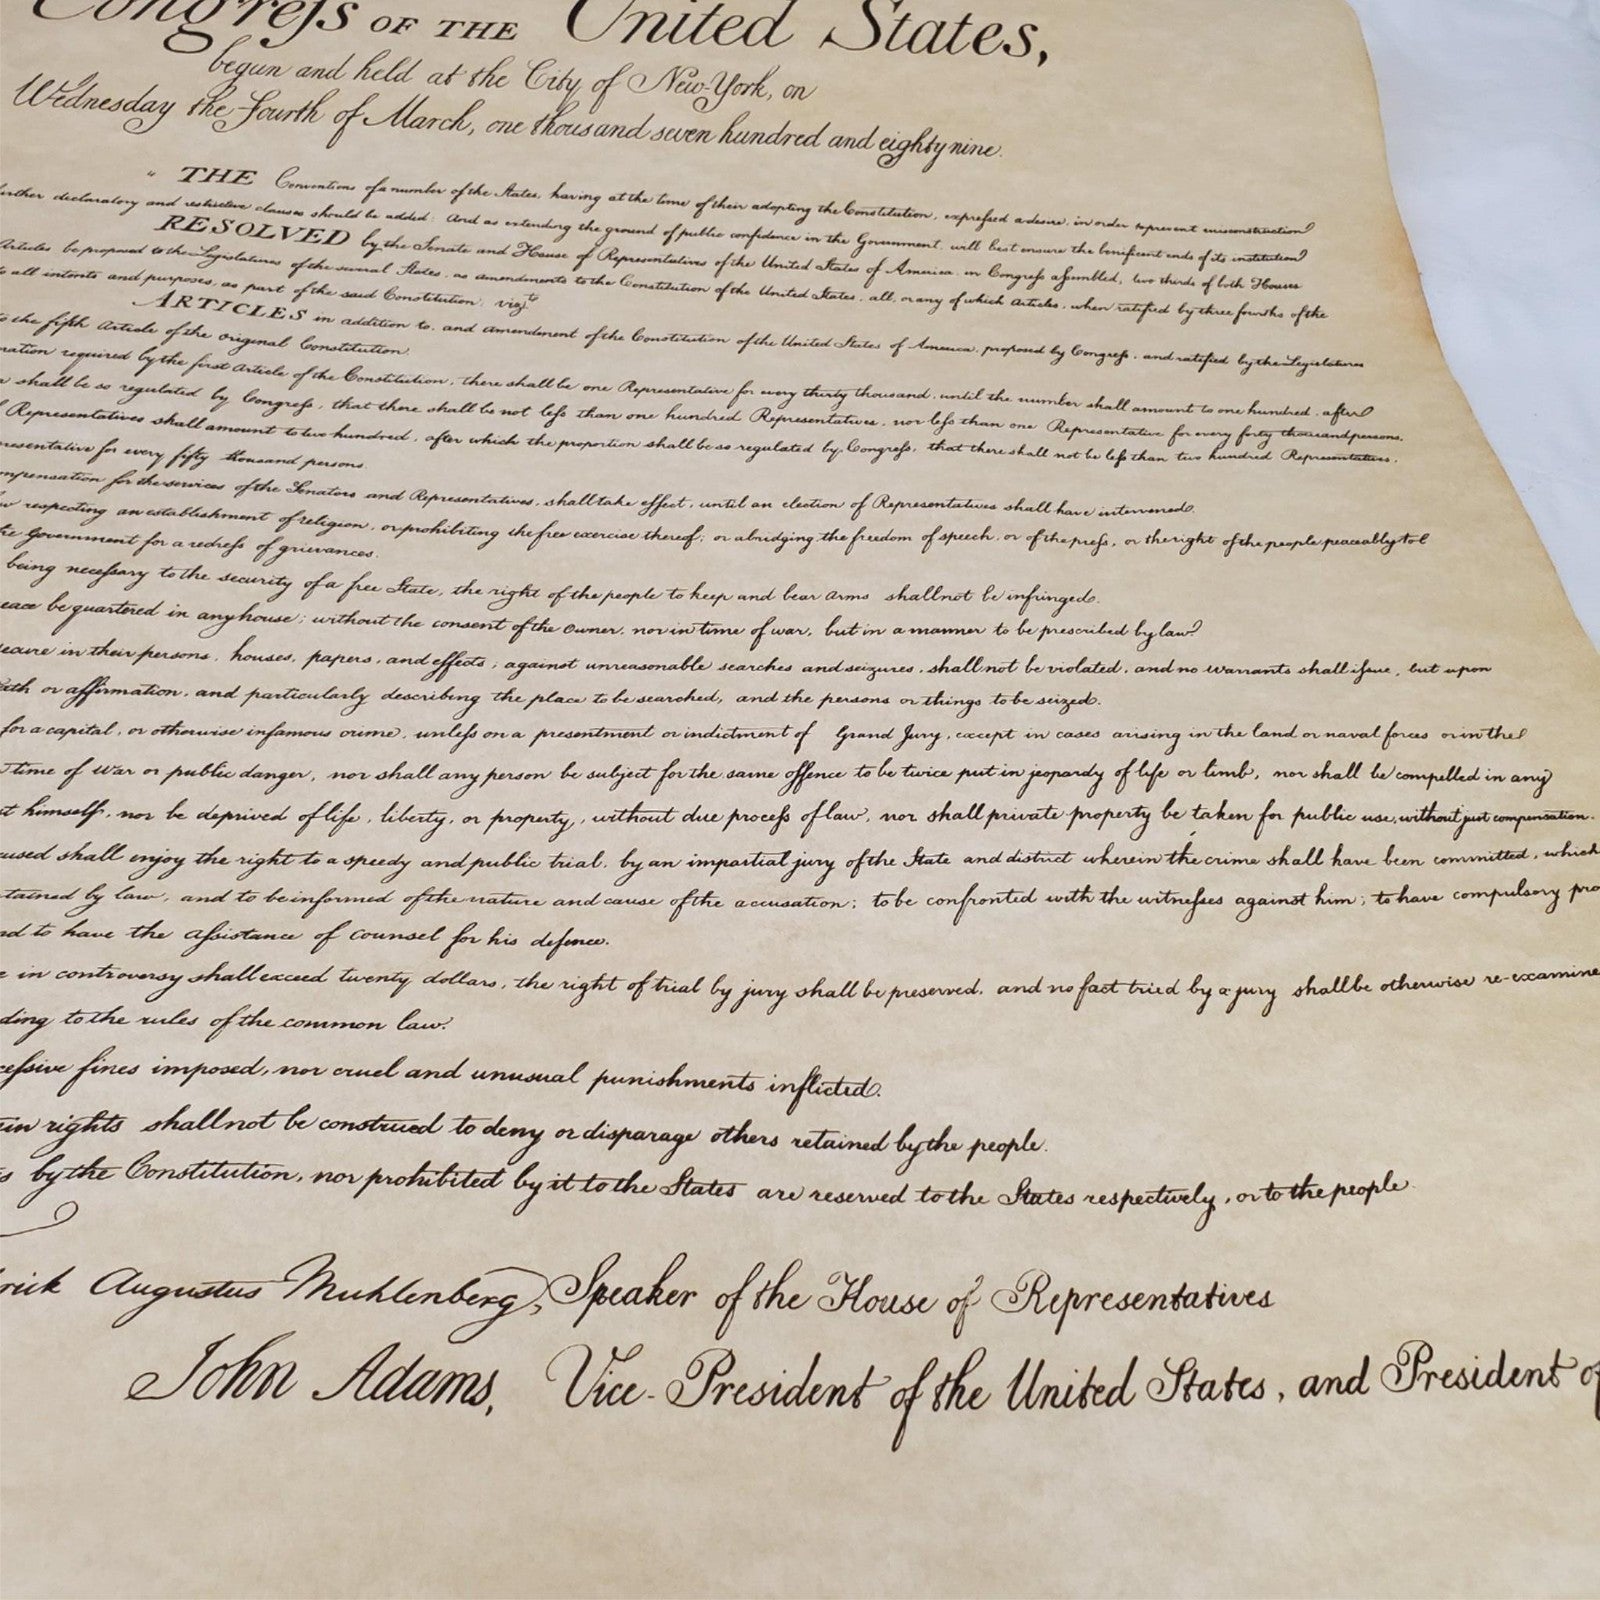 Congreſs OF THE United States,
begun and held at the City of New-York, on
Wednesday the Fourth of March, one thousand seven hundred and eighty nine.
THE Conventions of a number of the States, having at the time of their adopting the Constitution, expreſsed a desire, in order to prevent misconstruction
further declaratory and restrictive clauses should be added: And as extending the ground of public confidence in the Government, will best ensure the benificent ends of its institution
RESOLVED by the Senate and House of Representatives of the United States of America, in Congreſs aſsembled, two thirds of both Houses
Articles be proposed to the Legislatures of the several States, as amendments to the Constitution of the United States, all, or any of which Articles, when ratified by three fourths of the
to all intents and purposes, as part of the said Constitution; vizt.
ARTICLES in addition to, and amendment of the Constitution of the United States of America, proposed by Congreſs, and ratified by the Legislatures
to the fifth Article of the original Constitution.
required by the first Article of the Constitution, there shall be one Representative for every thirty thousand, until the number shall amount to one hundred, after
shall be so regulated by Congreſs, that there shall be not leſs than one hundred Representatives, nor leſs than one Representative for every forty thousand persons,
Representatives shall amount to two hundred, after which the proportion shall be so regulated by Congreſs, that there shall not be leſs than two hundred Representatives,
for every fifty thousand persons.
for the services of the Senators and Representatives, shall take effect, until an election of Representatives shall have intervened.
respecting an establishment of religion, or prohibiting the free exercise thereof; or abridging the freedom of speech, or of the preſs, or the right of the people peaceably to
Government for a redreſs of grievances.
being neceſsary to the security of a free State, the right of the people to keep and bear arms shall not be infringed.
be quartered in any house, without the consent of the owner, nor in time of war, but in a manner to be prescribed by law.
in their persons, houses, papers, and effects, against unreasonable searches and seizures, shall not be violated, and no warrants shall iſsue, but upon
or affirmation, and particularly describing the place to be searched, and the persons or things to be seized.
for a capital, or otherwise infamous crime, unleſs on a presentment or indictment of Grand Jury, except in cases arising in the land or naval forces or in the
time of war or public danger, nor shall any person be subject for the same offence to be twice put in jeopardy of life or limb, nor shall be compelled in any
himself, nor be deprived of life, liberty, or property, without due proceſs of law, nor shall private property be taken for public use, without just compensation.
shall enjoy the right to a speedy and public trial, by an impartial jury of the State and district wherein the crime shall have been committed, which
tained by law, and to be informed of the nature and cause of the accusation; to be confronted with the witneſses against him; to have compulsory pro
to have the aſsistance of counsel for his defence.
in controversy shall exceed twenty dollars, the right of trial by jury shall be preserved, and no fact tried by a jury shall be otherwise re-examine
ding to the rules of the common law.
ceſsive fines imposed, nor cruel and unusual punishments inflicted.
rights shall not be construed to deny or disparage others retained by the people.
by the Constitution, nor prohibited by it to the States are reserved to the States respectively, or to the people.
rick Augustus Muhlenberg, Speaker of the House of Representatives
John Adams, Vice-President of the United States, and President of